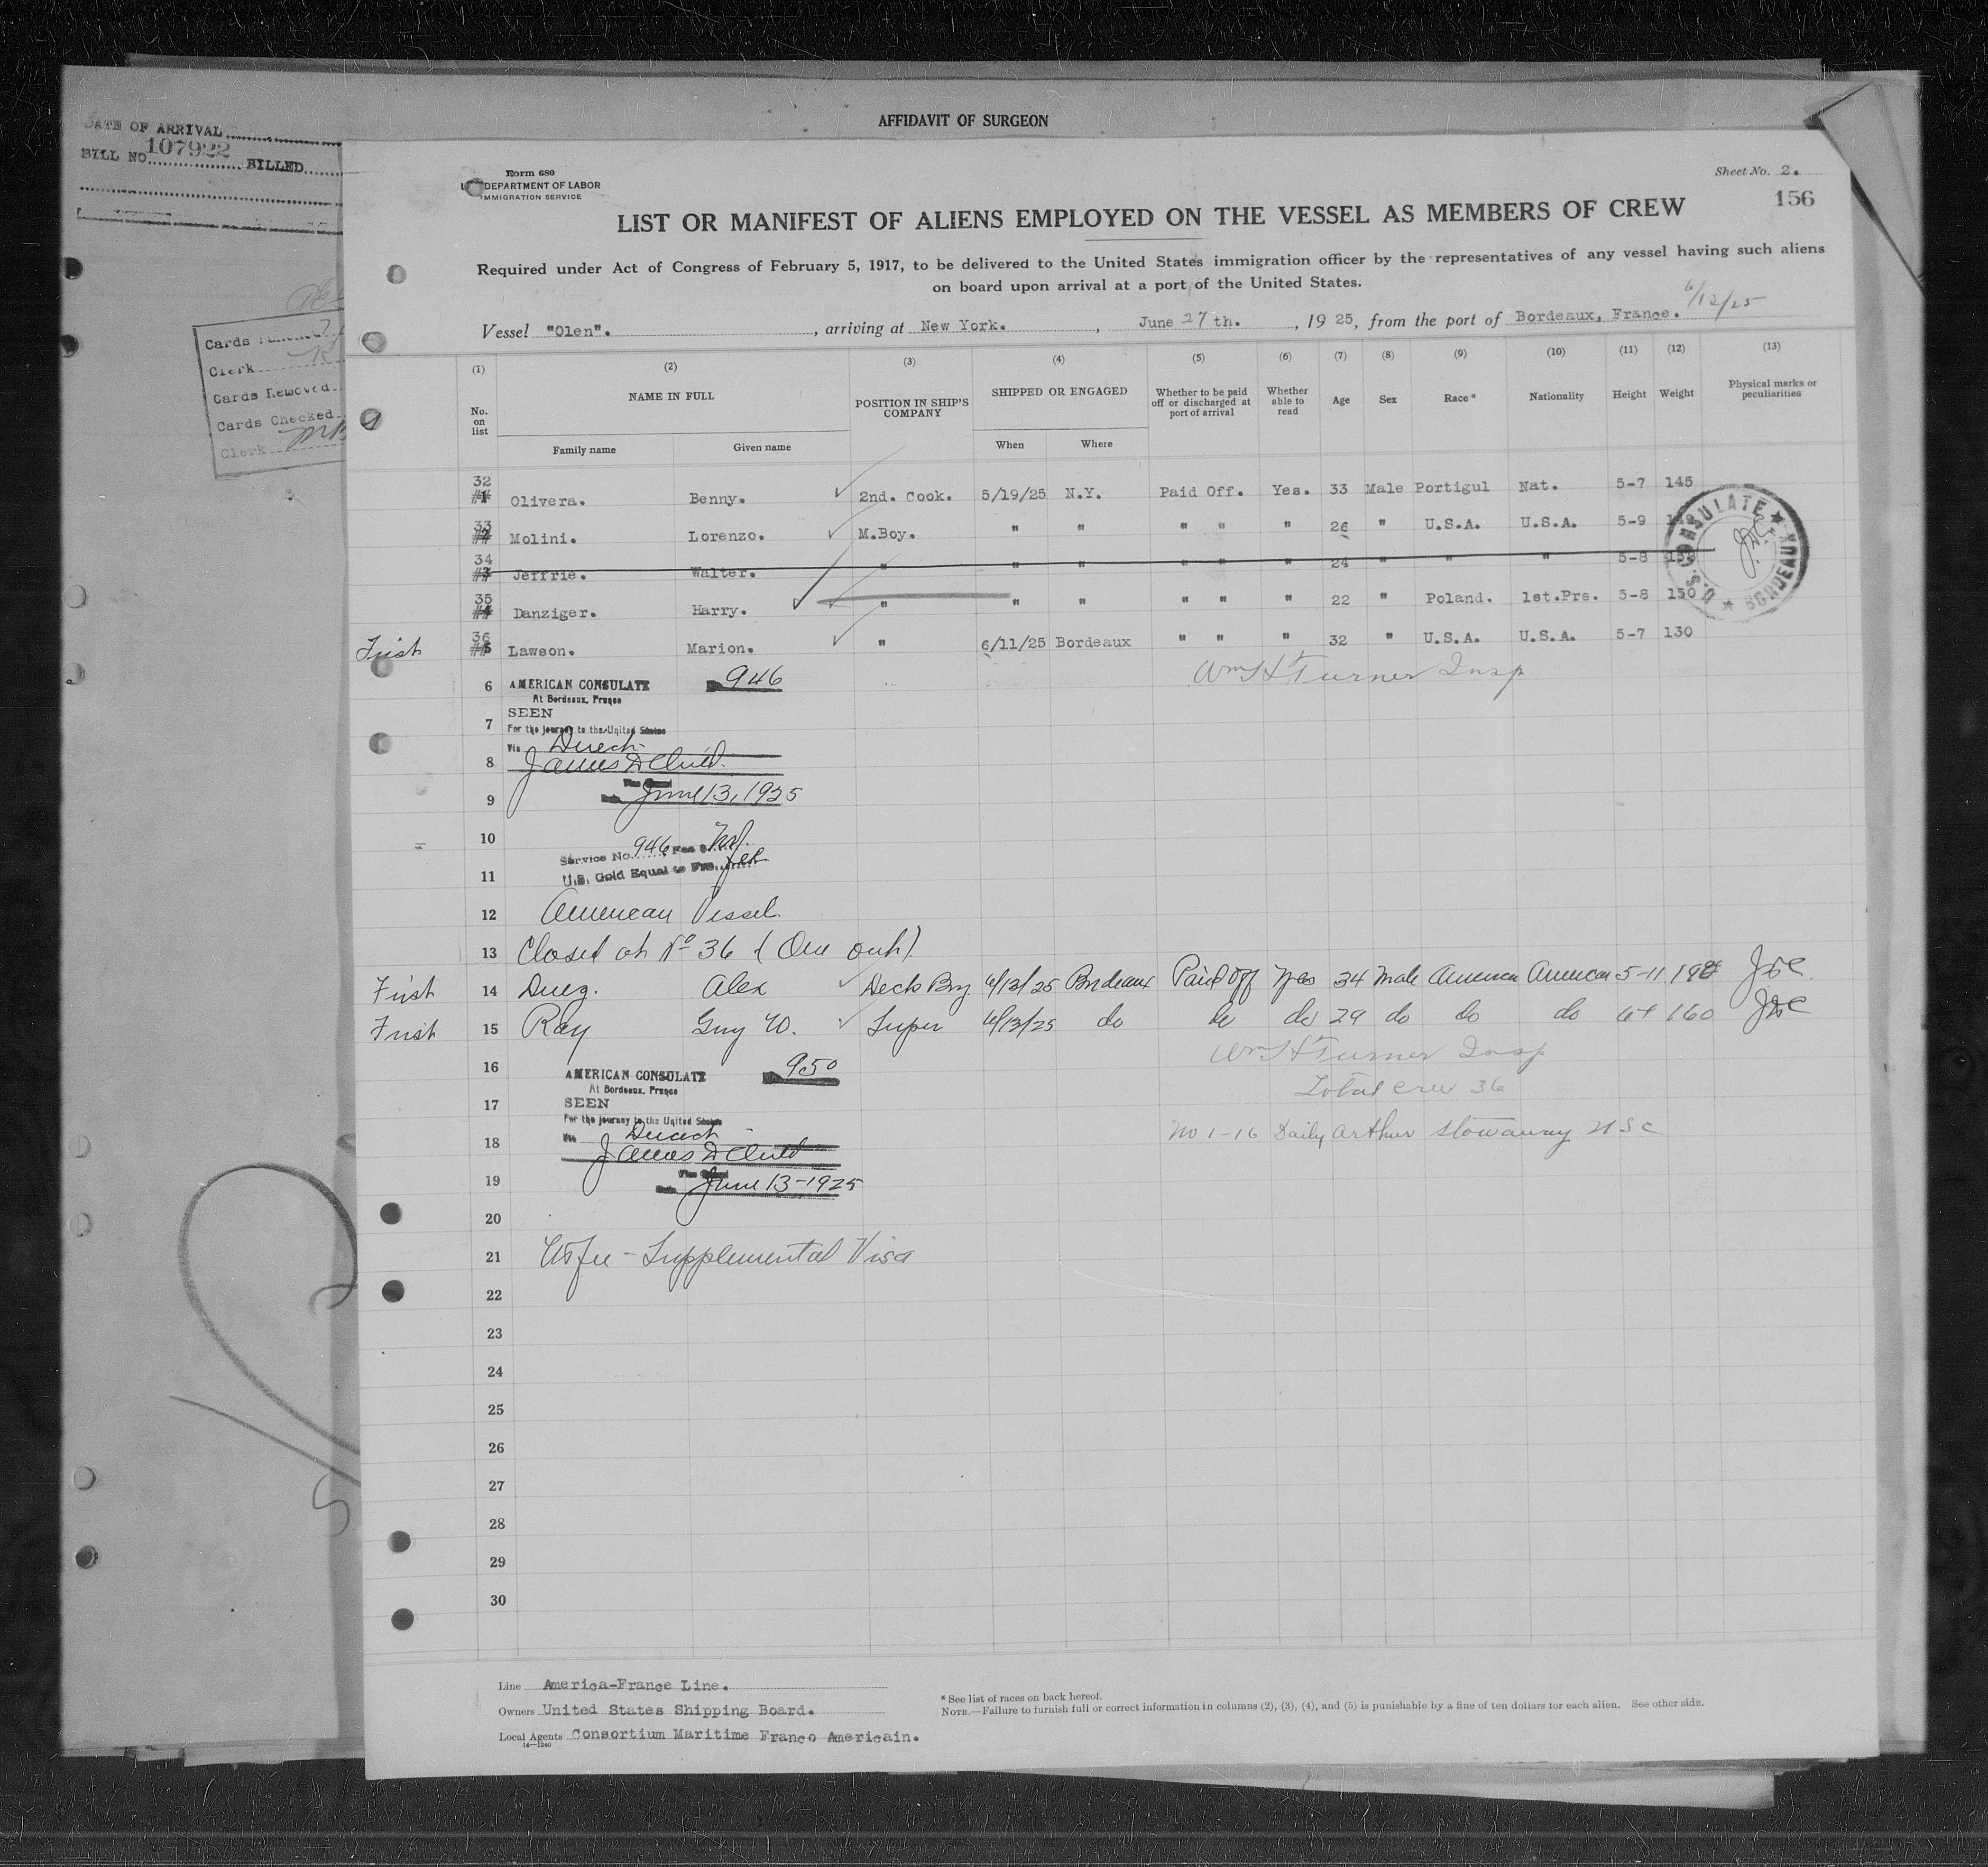 AFFIDAVIT OF SURGEON
DATE OF ARRIVAL
BILL NO. 107922 BILLED
Cards
Clerk
Cards Removed
Cards Checked
Clerk
Form 680
DEPARTMENT OF LABOR
IMMIGRATION SERVICE
Sheet No. 2.
156
LIST OR MANIFEST OF ALIENS EMPLOYED ON THE VESSEL AS MEMBERS OF CREW
Required under Act of Congress of February 5, 1917, to be delivered to the United States immigration officer by the representatives of any vessel having such aliens
on board upon arrival at a port of the United States.
6/12/25
Vessel "Olen". , arriving at New York. , June 27 th. , 19 25, from the port of Bordeaux, France.
(1) (2) (3) (4) (5) (6) (7) (8) (9) (10) (11) (12) (13)
No. on list NAME IN FULL Family name Given name POSITION IN SHIP'S COMPANY SHIPPED OR ENGAGED When Where Whether to be paid off or discharged at port of arrival Whether able to read Age Sex Race* Nationality Height Weight Physical marks or peculiarities
32 1 Olivera. Benny. 2nd. Cook. 5/19/25 N.Y. Paid Off. Yes. 33 Male Portigul Nat. 5-7 145
33 2 Molini. Lorenzo. M.Boy. " " " " " 26 " U.S.A. U.S.A. 5-9
34 3 Jeffrie. Walter. " " " " " " 24 " " " 5-8
35 4 Danziger. Harry. " " " " " " 22 " Poland. 1st.Prs. 5-8 150
First 36 5 Lawson. Marion. " 6/11/25 Bordeaux " " " 32 " U.S.A. U.S.A. 5-7 130
U.S. CONSULATE BORDEAUX
Wm H Turner Insp
6 AMERICAN CONSULATE 946
At Bordeaux, France
7 SEEN
For the journey to the United States
Via Direct
8
9 June 13, 1925
10
Service No. 946 Fee $
11 U.S. Gold Equal to Frs.
12 American Vessel
13 Closed at No 36 (One out)
First 14 Alex Deck Boy 6/12/25 Bordeaux Paid Off Yes 34 Male American American 5-11
First 15 Ray Guy W. Super 6/13/25 do do do 29 do do do 6+ 160
Wm H Turner Insp
16 AMERICAN CONSULATE 950
At Bordeaux, France
Total crew 36
17 SEEN
For the journey to the United States
No 1-16 Daily Arthur stowaway U S C
18 Via Direct
19 June 13-1925
20
21 No fee - Supplemental Visa
22
23
24
25
26
27
28
29
30
Line America-France Line.
Owners United States Shipping Board.
Local Agents Consortium Maritime Franco Americain.
14—1240
* See list of races on back hereof.
NOTE.—Failure to furnish full or correct information in columns (2), (3), (4), and (5) is punishable by a fine of ten dollars for each alien. See other side.